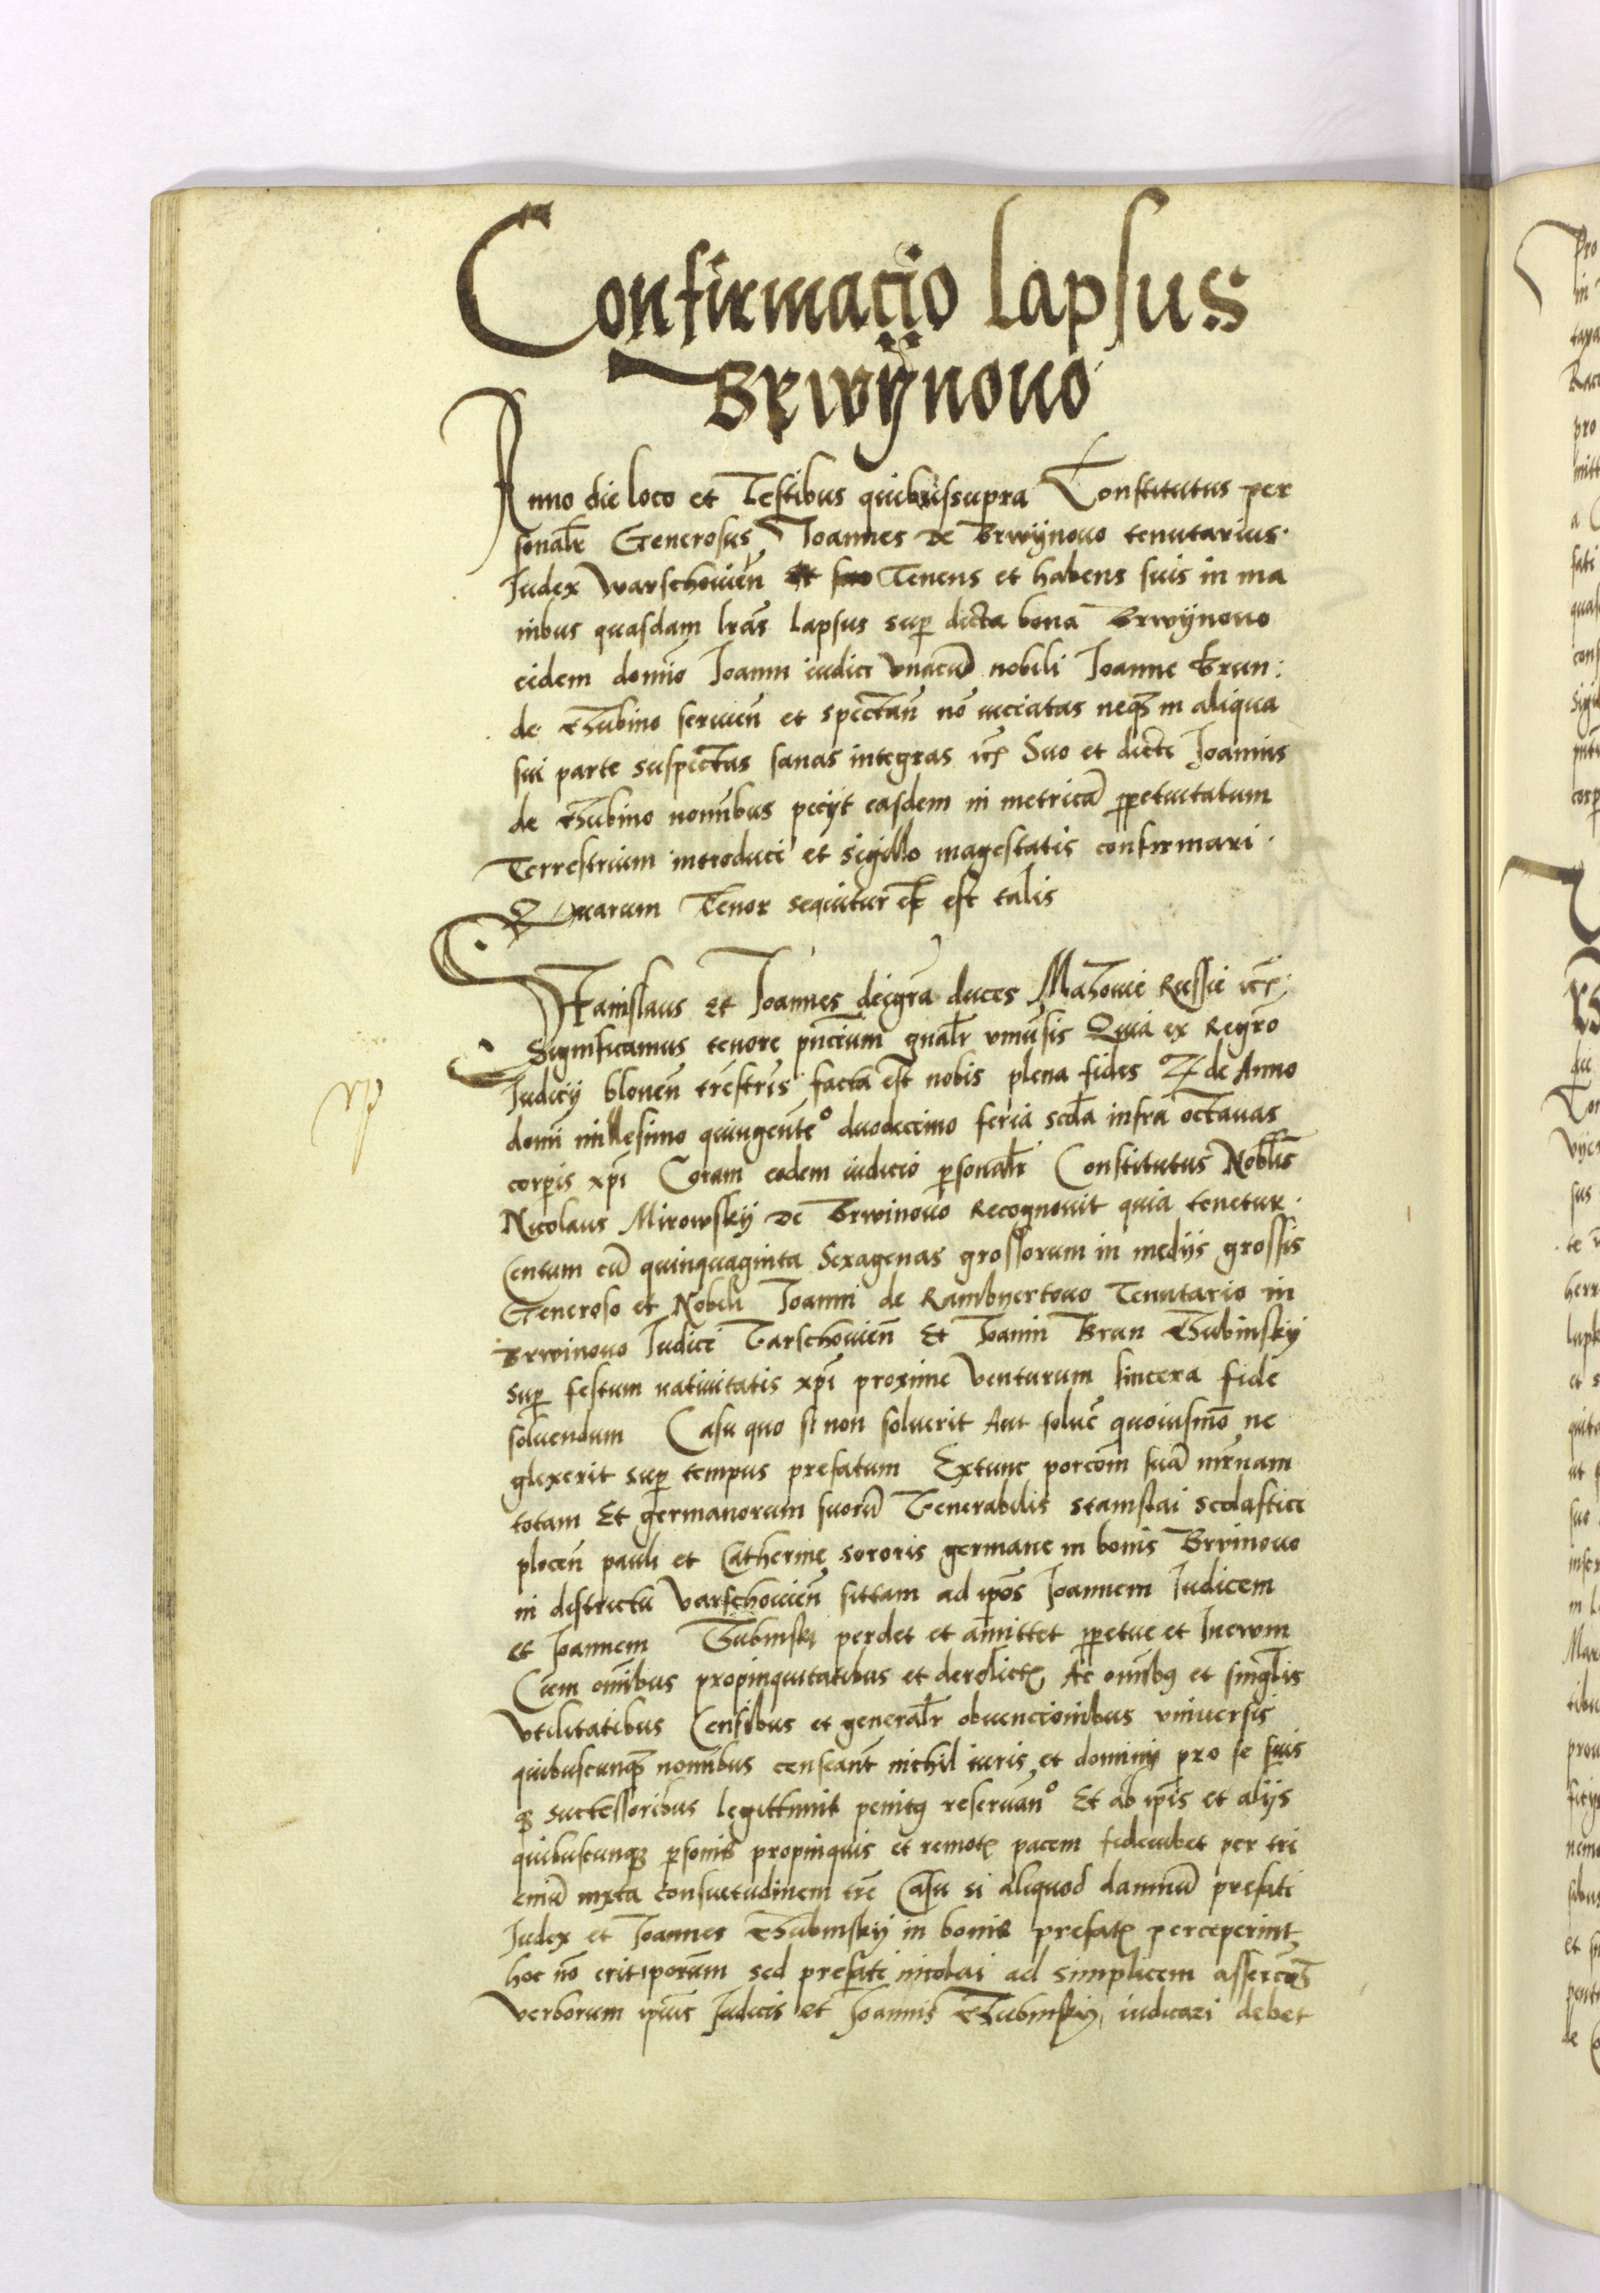 Confirmacio Lapsus
Brwÿnovo
Anno die loco et Testibus quibussupra Constitutus per
sonalr̃ Generosus Joannes de Brwÿnovo tenutarius.
Judex warschovien̄ Tenens et habens suis in ma
nibus quasdam lrās Lapsus sup̱ dicta bona Brwÿnovo
eidem domīo Joanni iudici vnacū nobili Joanne Brun:
de Thubino servien̄ et spectan̄ nō viciatas neq̄ in aliqua
sui parte suspectas sanas integras etc̄ Suo et dicti Joannis
de Thubino noīnibus peciÿt easdem in metricā ꝑpetuitatum
Terrestrium introduci et sigillo magestatis confirmari.
Quarum Tenor sequitur et est talis
Stanislaus et Joannes dei grā duces Mazovie Russie etc̄.
Significamus tenore pn̄cium gnalr̃ vniūsis Quia ex Regrō
Judicÿ blonen̄ trēstris facta est nobis plena fides de Anno
domi millesimo quingente° duodecimo feria scd̄a infra octavas
corpis xp̄i Coram eodem iudicio ꝑsonalr̃ Constitutus Nobl̄is
Nicolaus Mirowskÿ de Brwinovo Recognovit quia tenetur.
Centum cū quinquaginta Sexagenas grossorum in medÿs grossis
Generoso et Nobili Joanni de Rambyertovo Tenutario in
Brwinovo Judici Varschovien̄ Et Joanni Brun Thubinskÿ
sup̱ festum nativitatis xp̄i proxime venturum sincera fide
solvendum Casu quo si non solverit Aut solvē quoiusmō ne
glexerit sup̱ tempus prefatum Extunc porcōm suā mr̄nam
totam Et germanorum suorū Venerabilis stanislai scolastici
plocen̄ pauli et Catherine sororis germane in bonis Brvinovo
in districtu Varschovien̄ sittam ad ip̄os Joannem Judicem
et Joannem Thubinski perdet et amittet ꝑpetue et Inevum
Cum omībus propinquitatibus et derelictꝭ Ac omībꝫ et singl̄is
vtilitatibus Censibus et generalr̃ obvencionibus vniversis
quibuscunqꝫ nomībus censeant̄ nichil iuris et dominÿ pro se suis
qꝫ successoribus legittimis penitꝫ reservan° Et ab ip̄is et alÿs
quibuscunqꝫ ꝑsonis propinquis et remotꝭ pacem fideiubet per tri
eniū iuxta consuetudinem trē Casu si aliquod damnū prefati
Judex et Joannes Thubinskÿ in bonis prefatꝭ perceperint
hoc nō erit ip̄orum sed prefati nicolai ad simplicem assercōm̄
verborum ip̄ius Judicis et Joannis Thubinskÿ iudicari debet